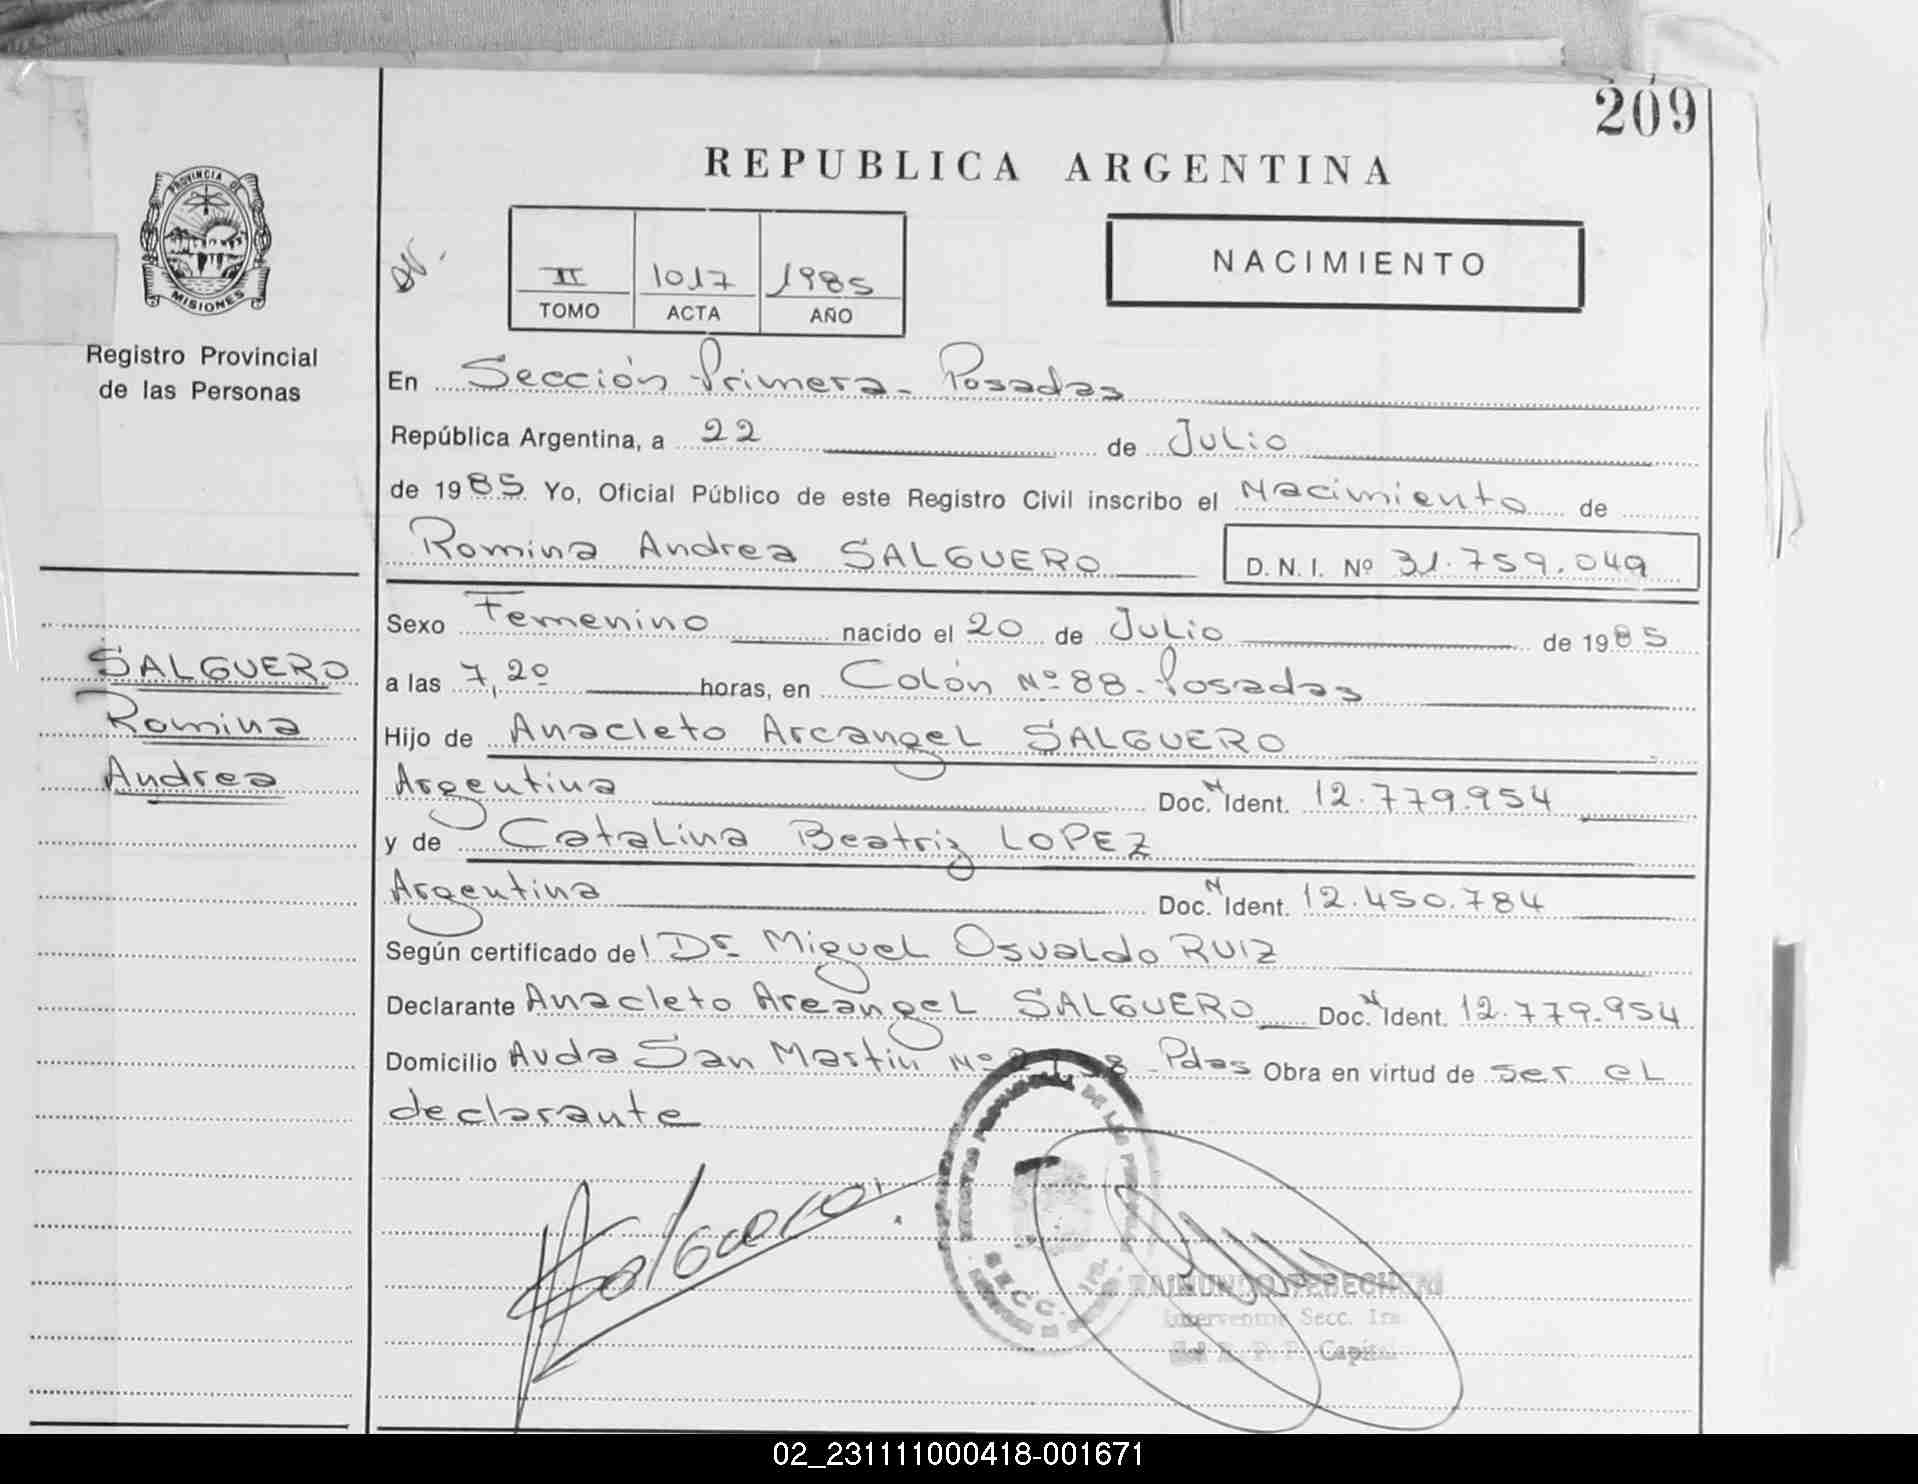 209
REPUBLICA ARGENTINA
PROVINCIA DE
MISIONES
Registro Provincial
de las Personas
II 1017 1985
TOMO ACTA AÑO
NACIMIENTO
En Sección Primera - Posadas
República Argentina, a 22 de Julio
de 1985 Yo, Oficial Público de este Registro Civil inscribo el Nacimiento de
Romina Andrea SALGUERO D. N. I. Nº 31.759.049
Sexo Femenino nacido el 20 de Julio de 1985
SALGUERO
Romina
Andrea
a las 7,20 horas, en Colón Nº 88 - Posadas
Hijo de Anacleto Arcangel SALGUERO
Argentina Doc. N Ident. 12.779.954
y de Catalina Beatriz LOPEZ
Argentina Doc. N Ident. 12.450.784
Según certificado del Dr. Miguel Osvaldo RUIZ
Declarante Anacleto Arcangel SALGUERO Doc. N Ident. 12.779.954
Domicilio Avda San Martin Nº Pdas Obra en virtud de ser el
declarante
Salguero
SECC. 1ra.
RAIMUNDO
Interventor Secc. 1ra
Capital
02_231111000418-001671